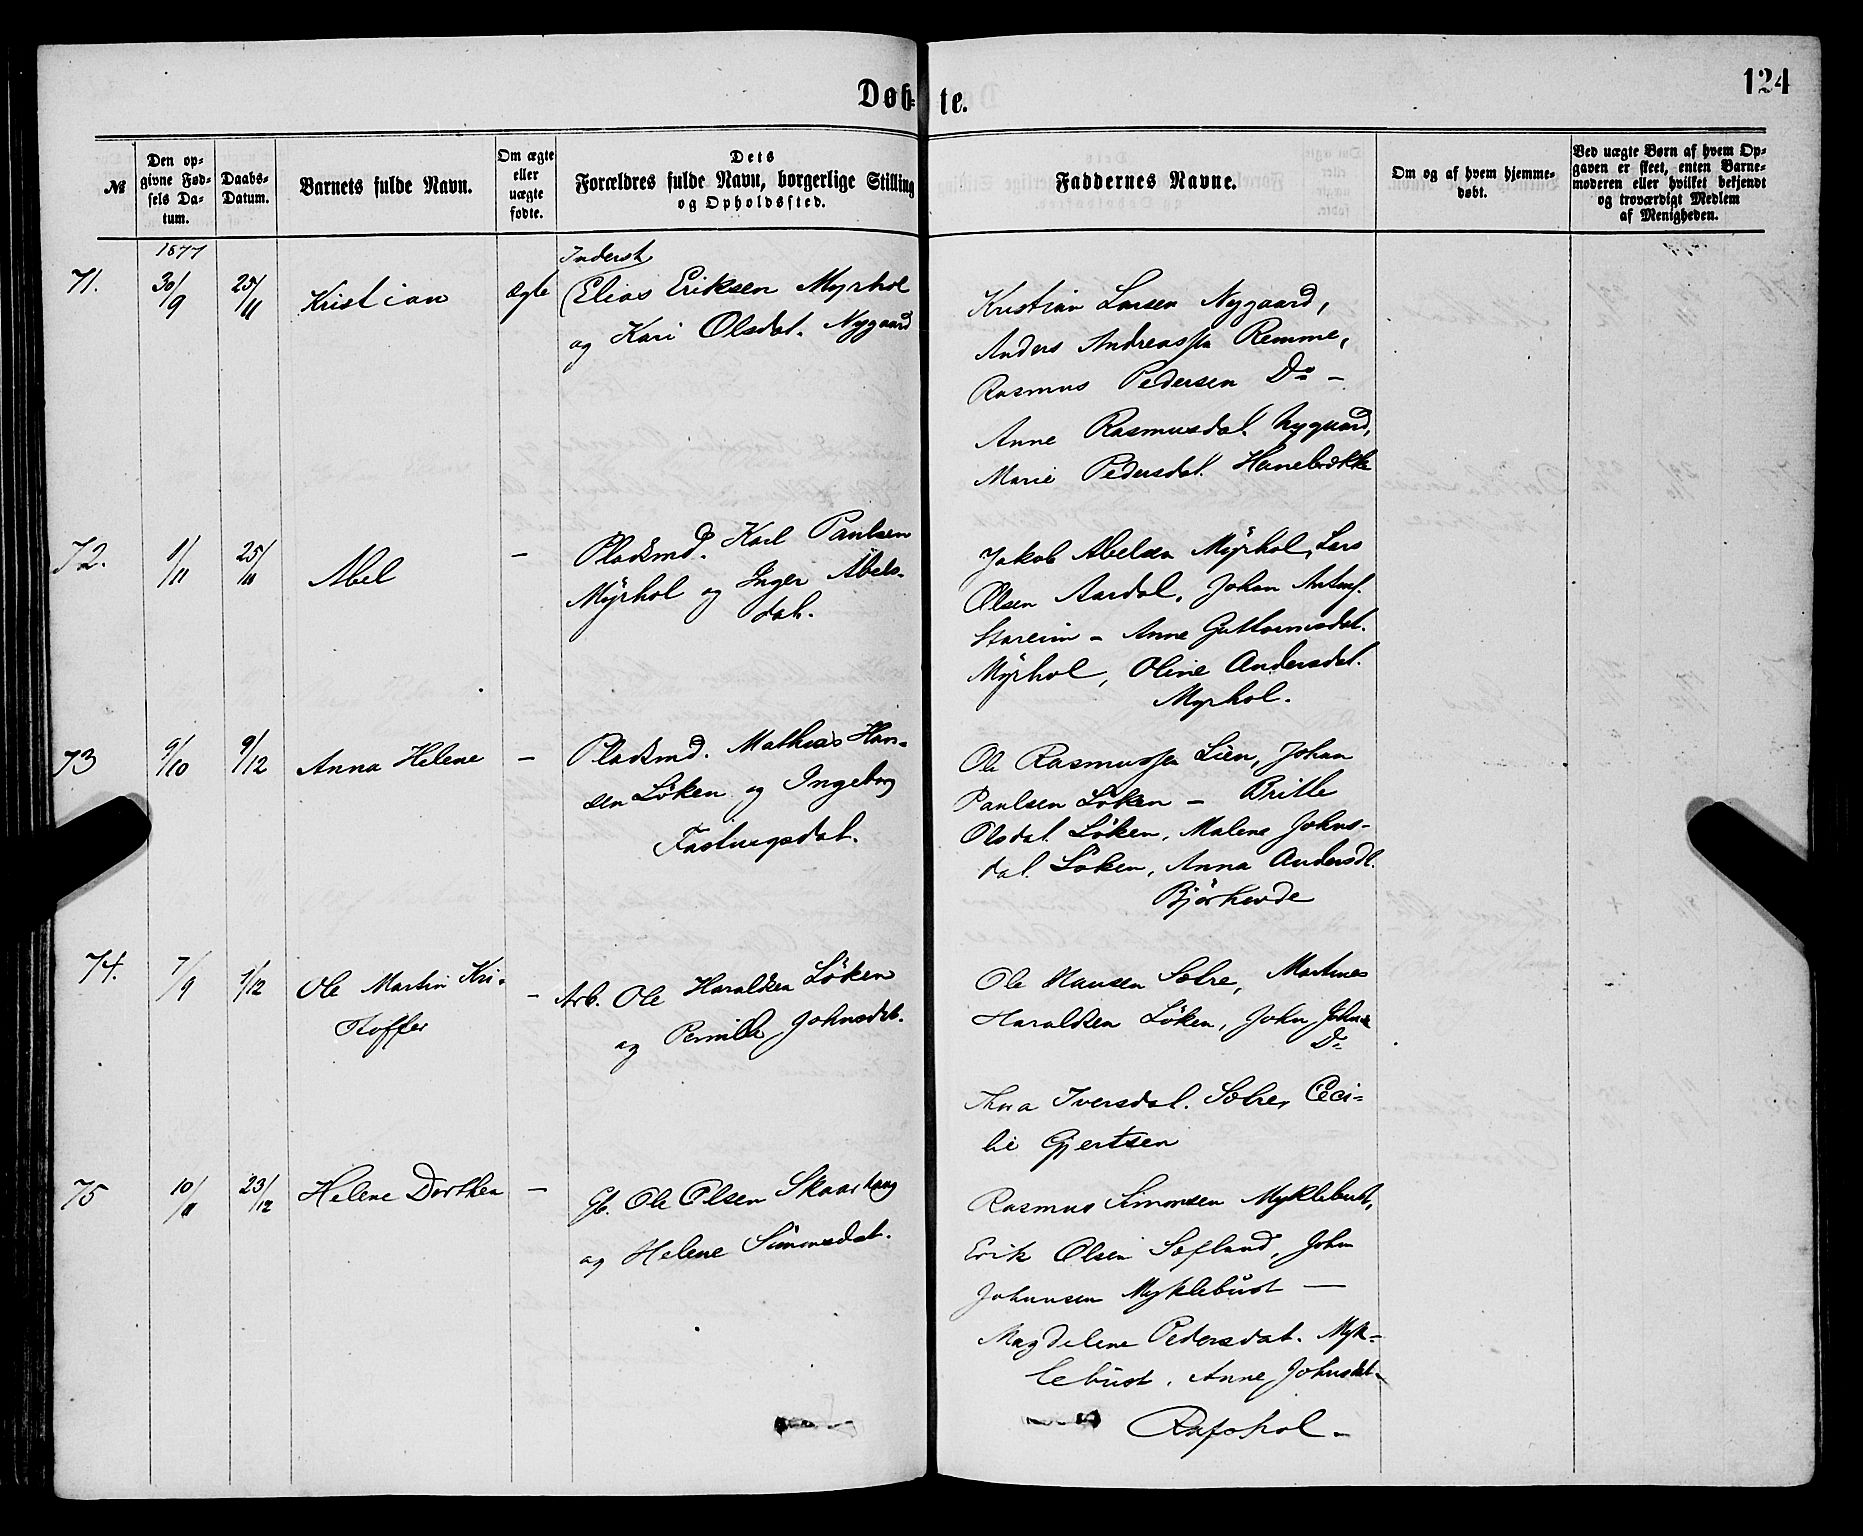 Døb-te.
124
№
Den op-
givne Fød-
sels Da-
tum.
Daabs-
Datum.
Barnets fulde Navn.
Om ægte
eller
uægte
fødte.
Dets
Forældres fulde Navn, borgerlige Stilling
og Opholdssted.
Faddernes Navne.
Om og af hvem hjemme-
døbt.
Ved uægte Børn af hvem Op-
gaven er skeet, enten Barne-
moderen eller hvilket bekjendt
og troværdigt Medlem
af Menigheden.
1877
71.
30/9
25/11
Kristian
Ægte
Inderst
Elias Eriksen Myrhol
og Kari Olsdat. Nygaard
Kristian Larsen Nygaard,
Anders Andreassen Remme,
Rasmus Pedersen Do –
Anne Rasmusdat. Nygaard,
Marie Pedersdat. Hanebrekke
72.
1/11
25/11
Abel
–
Pladsmd. Karl Paulsen
Myrhol og Inger Abels-
dat.
Jakob Abelsen Myrhol, Lars
Olsen Aardal, Johan
Stareim – Anne Guttormsdat.
Myrhol, Oline Andersdat.
Myrhol.
73
9/10
9/12
Anna Helene
–
Pladsmd. Mathias Han-
sen Løken og Ingeborg
Fastingsdat.
Ole Rasmussen Lien, Johan
Paulsen Løken – Britte
Olsdat. Løken, Malene Johns-
dat. Løken, Anna Andersdt.
74.
7/9
1/12
Ole Martin Kri-
stoffer
–
Arb. Ole Haraldsen Løken
og Pernille Johnsdat.
Ole Hansen Solre, Martines
Haraldsen Løken, John Johns.
Do
Anna Iversdat. Solre, Ceci-
lie Gjertsen
75
10/11
23/12
Helene Dorthea
–
Gb. Ole Olsen Skaarhaug
og Helene Simonsdat.
Rasmus Simonsen Myklebust,
Erik Olsen Sæfland, John
Johannsen Myklebust —
Magdelene Pedersdat. Myk-
lebust, Anne Johnsdat.